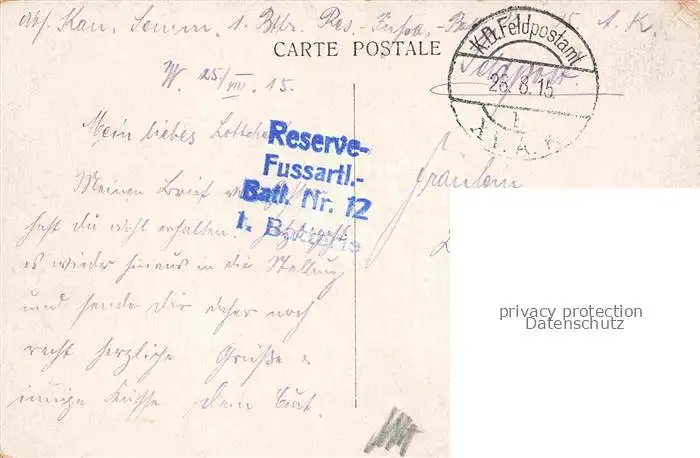 Abs. Kan. Semm. 1. Bttr. Res.-Fussa.-Bat. A. K.
CARTE POSTALE
K.D. Feldpostamt
26.8.15.
A. K.
Feldpost.
W. 25/VIII. 15.
Mein liebes Lottchen!
Reserve-
Fussartl.-
Batl. Nr. 12
1. Batterie
Fräulein
Meinen Brief
hast du wohl erhalten. Jetzt geht
es wieder hinaus in die Stellung
und sende Dir daher noch
recht herzliche Grüße &
einige Küsse Dein Curt.
privacy protection
Datenschutz